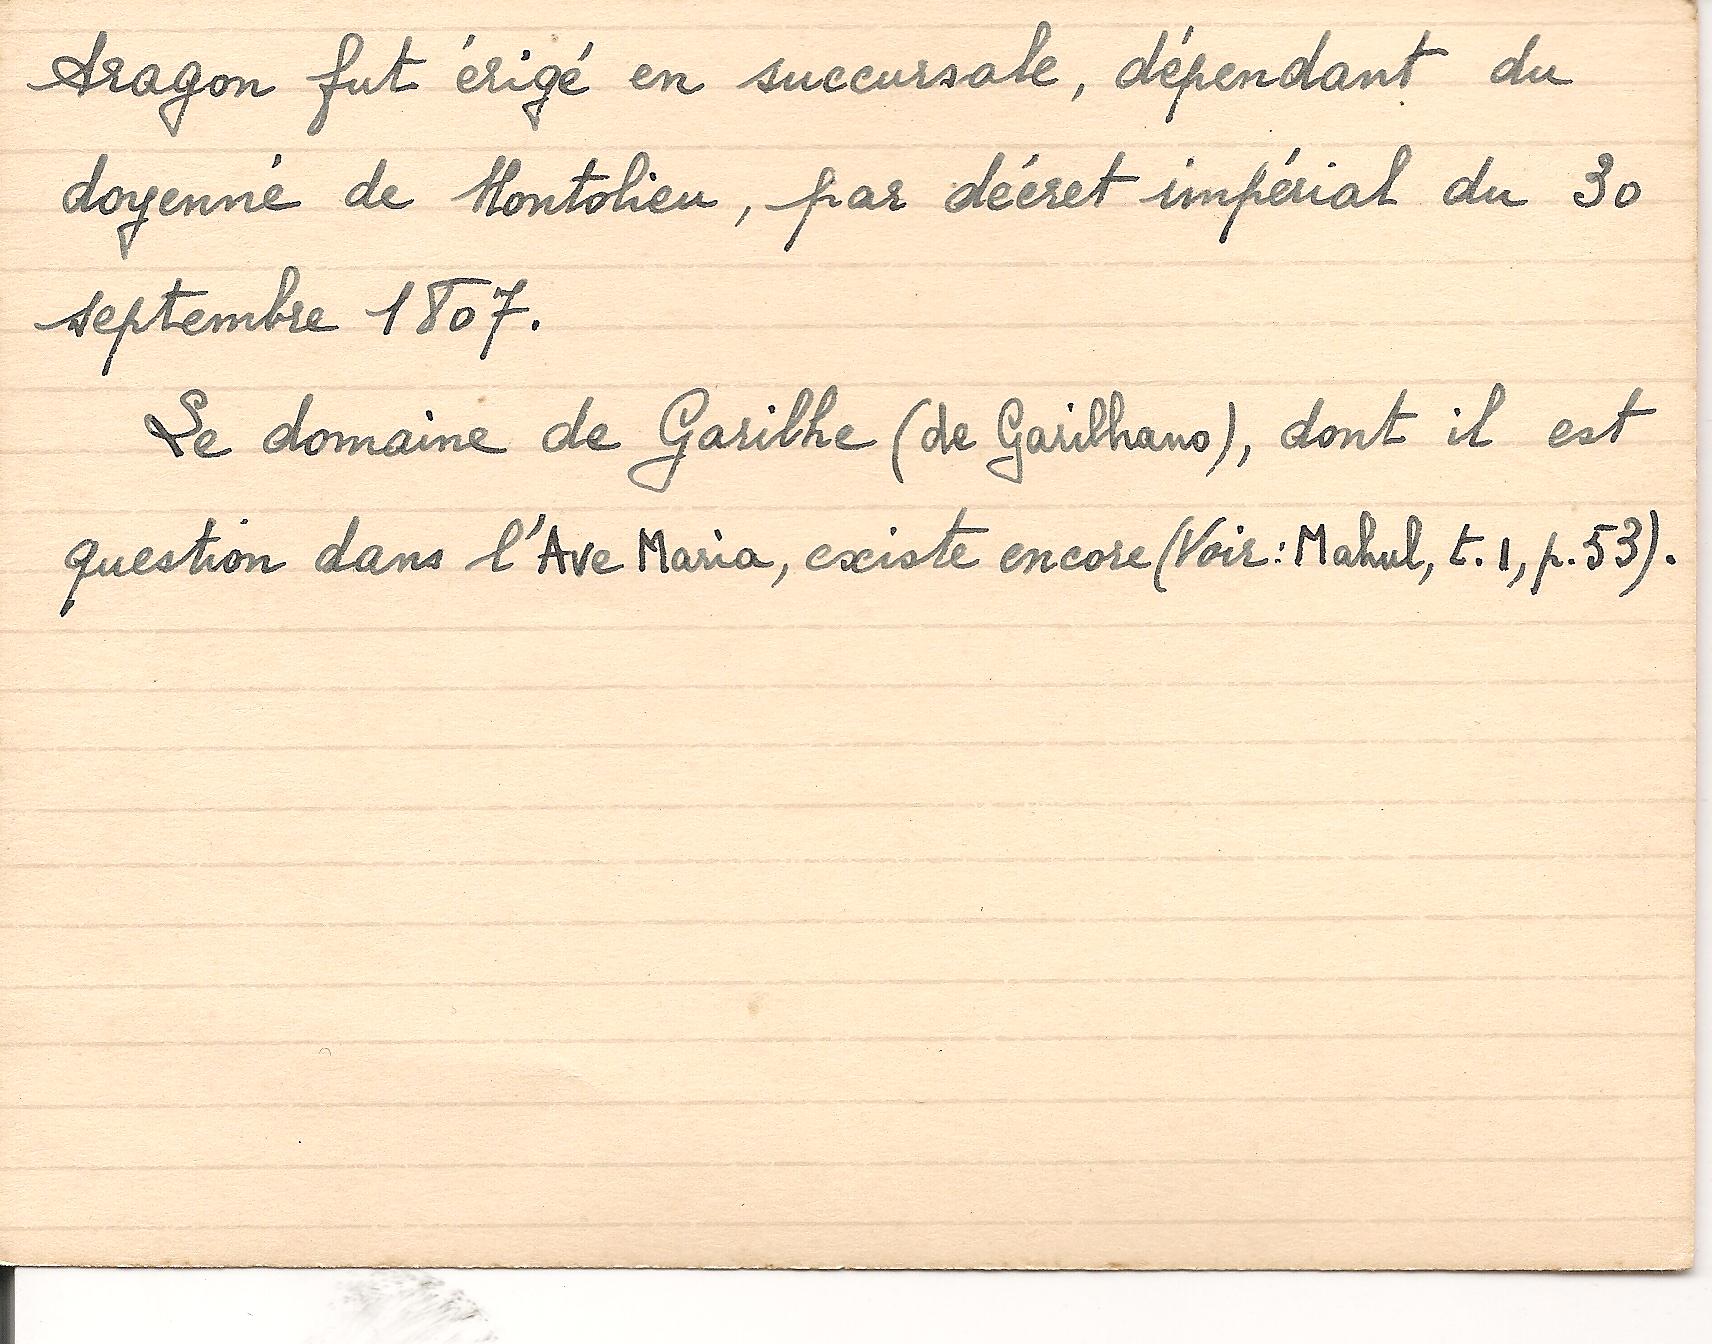 Aragon fut érigé en succursale, dépendant du
doyenné de Montolieu, par décret impérial du 30
septembre 1807.
Le domaine de Garilhe (de Garilhano), dont il est
question dans l'Ave Maria, existe encore (Voir: Mahul, t. 1, p. 53).